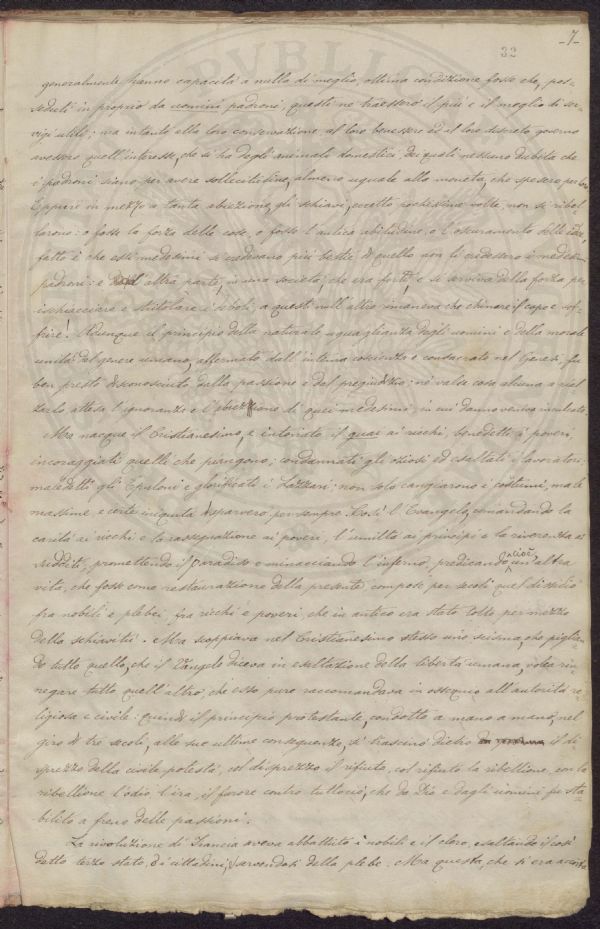 -7-
32
generalmente hanno capacità a nulla di meglio, ottima condizione fosse che, pos=
seduti in proprio da uomini padroni, questi ne traessero il più e il meglio di ser-
vigi utili; ma intanto alla loro conservazione, al loro benessere ed al loro discreto governo
avessero quell'interesse, che si ha degli animali domestici, dei quali nessuno dubita che
i padroni siano per avere sollecitudine, almeno uguale alla moneta, che spesero per loro
Eppure in mezzo a tanta abiezione, gli schiavi, eccetto pochissime volte, non si ribel-
larono: o fosse la forza delle cose, o fosse l'antica abitudine, o l'oscuramento delle idee,
fatto è che essi medesimi si credevano più bestie di quello non li credessero i medesimi
padroni: e d'altra parte, in una società, che era forte, e si serviva della forza per
ischiacciare e stritolare i deboli, a questi null'altro rimaneva che chinare il capo e sof-
frire! Adunque il principio della naturale uguaglianza degli uomini e della morale
unità del genere umano, affermato dall'intima coscienza e consacrato nel Genesi, fu
ben presto disconosciuto dalla passione e dal pregiudizio; né valse cosa alcuna a rial
zarlo attesa l'ignoranza e l'abiezione di quei medesimi, in cui danno veniva inculcato.
Ma nacque il Cristianesimo, e intonato il guai ai ricchi, benedetti i poveri,
incoraggiati quelli che piangono; condannati gli oziosi ed esaltati i lavoratori;
maledetti gli Epuloni e glorificati i Lazzari: non solo cangiarono i costumi, ma le
massime, e certe iniquità disparvero per sempre. Così l'Evangelo, comandando la
carità ai ricchi e la rassegnazione ai poveri, l'umiltà ai principi e la riverenza ai
sudditi, promettendo il paradiso e minacciando l'inferno, predicando cioè un'altra
vita, che fosse come restaurazione della presente, compose per secoli quel dissidio
fra nobili e plebei, fra ricchi e poveri, che in antico era stato tolto per mezzo
della schiavitù. Ma scoppiava nel Cristianesimo stesso uno scisma, che piglian-
do tutto quello, che il Vangelo diceva in esaltazione della libertà umana, volea rin-
negare tutto quell'altro, che esso pure raccomandava in ossequio all'autorità re-
ligiosa e civile: quindi il principio protestante, condotto a mano a mano, nel
giro di tre secoli, alle sue ultime conseguenze, si trascinò dietro il di
sprezzo della civile potestà, col disprezzo il rifiuto, col rifiuto la ribellione, con la
ribellione l'odio, l'ira, il furore contro tuttociò, che da Dio e dagli uomini fu sta-
bilito a freno delle passioni.
La rivoluzione di Francia aveva abbattuto i nobili e il clero, esaltando il così
detto terzo stato, o i cittadini, servendosi della plebe. Ma questa, che si era accorta